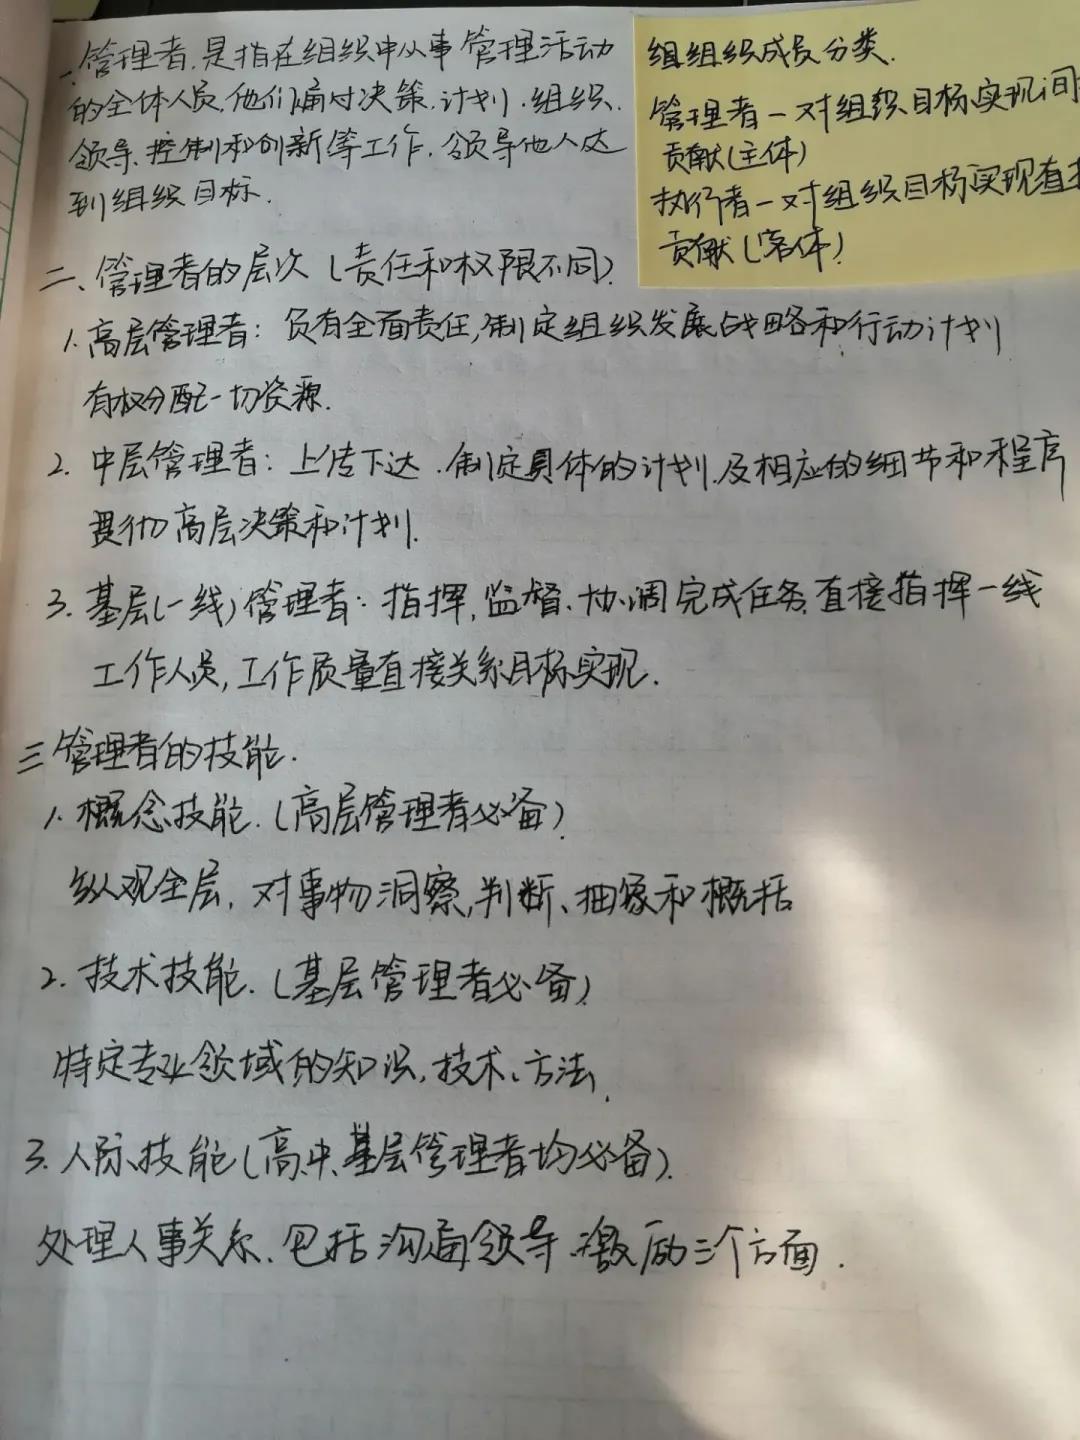 一、管理者.是指在组织中从事管理活动
的全体人员.他们通过决策.计划.组织.
领导.控制和创新等工作.领导他人达
到组织目标.
组组织成员分类.
管理者—对组织目标实现间
贡献(主体)
执行者—对组织目标实现直接
贡献(客体)
二、管理者的层次(责任和权限不同)
1.高层管理者:负有全面责任,制定组织发展战略和行动计划
有权分配一切资源.
2.中层管理者:上传下达.制定具体的计划.及相应的细节和程序
贯彻高层决策和计划.
3.基层(一线)管理者:指挥,监督、协调完成任务,直接指挥一线
工作人员,工作质量直接关系目标实现.
三管理者的技能.
1.概念技能.(高层管理者必备)
纵观全层,对事物洞察,判断、抽象和概括
2.技术技能.(基层管理者必备)
特定专业领域的知识,技术、方法.
3.人际技能(高.中.基层管理者均必备).
处理人事关系.包括沟通领导.激励三个方面.